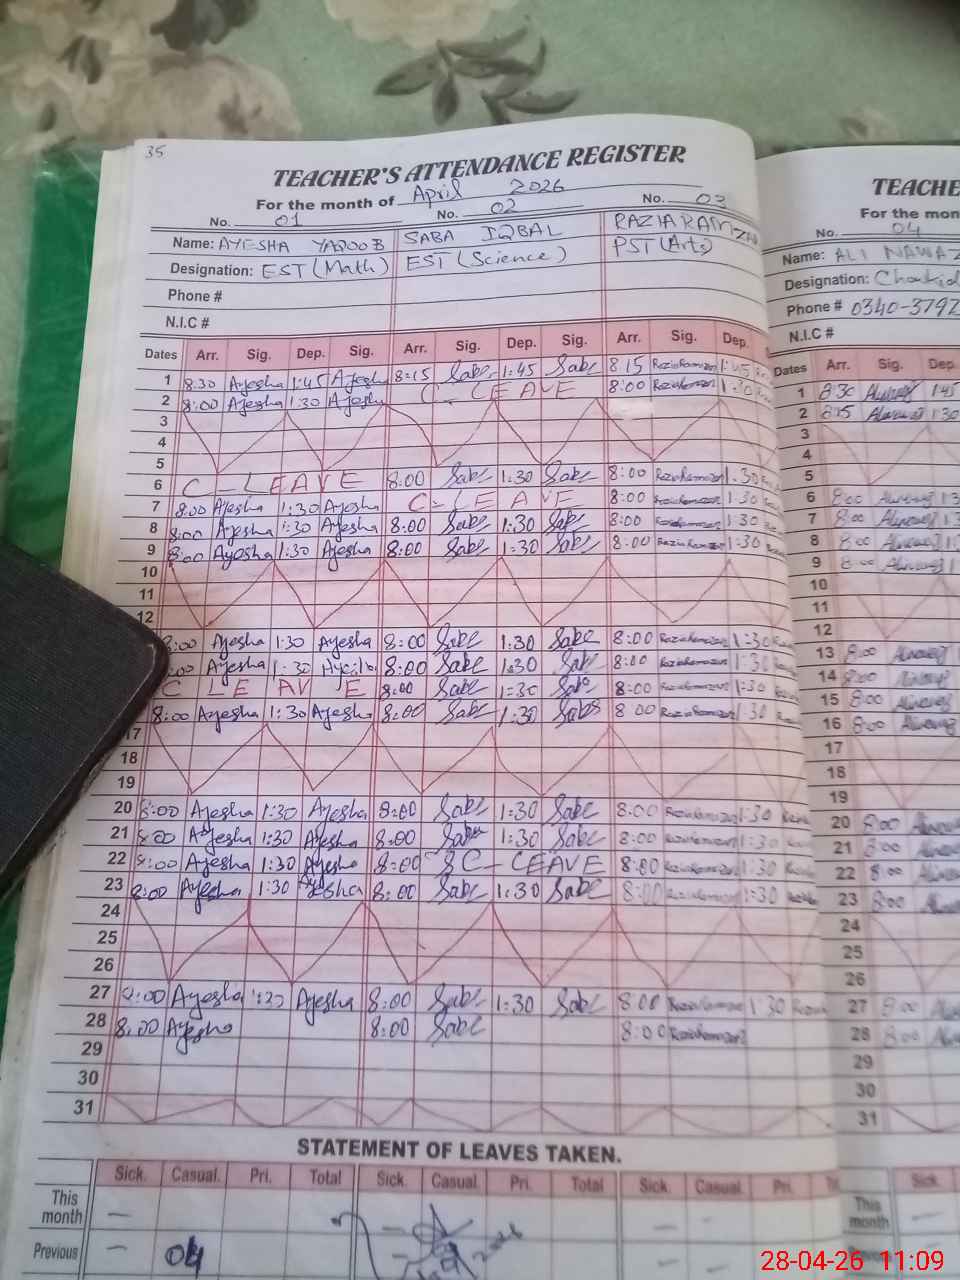 35
TEACHER'S ATTENDANCE REGISTER
For the month of April 2026
No. 01 No. 02 No. 03
Name: AYESHA YAQOOB SABA IQBAL RAZIA RAMZAN
Designation: EST (Math) EST (Science) PST (Arts)
Phone #
N.I.C #
Dates Arr. Sig. Dep. Sig. Arr. Sig. Dep. Sig. Arr. Sig. Dep.
1 8:30 Ayesha 1:45 Ayesha 8:15 Sabe 1:45 Sabe 8 15 RaziaRamzan 1:45
2 8:00 Ayesha 1:30 Ayesha C - LEAVE 8:00 RaziaRamzan 1:30
3
4
5
6 C - LEAVE 8:00 Sabe 1:30 Sabe 8:00 RaziaRamzan 1:30
7 8:00 Ayesha 1:30 Ayesha C - LEAVE 8:00 RaziaRamzan 1 30
8 8:00 Ayesha 1:30 Ayesha 8:00 Sabe 1:30 Sabe 8:00 RaziaRamzan 1 30
9 8:00 Ayesha 1:30 Ayesha 8:00 Sabe 1:30 Sabe 8:00 RaziaRamzan 1:30
10
11
12
8:00 Ayesha 1:30 Ayesha 8:00 Sabe 1:30 Sabe 8:00 RaziaRamzan 1:30
:00 Ayesha 1:30 8:00 Sabe 1:30 Sabe 8:00 RaziaRamzan 1:30
C LEAVE 8:00 Sabe 1:30 Sabe 8:00 RaziaRamzan 1:30
8:00 Ayesha 1:30 Ayesha 8:00 Sabe 1:30 Sabe 8 00 RaziaRamzan 1 30
17
18
19
20 8:00 Ayesha 1:30 Ayesha 8:00 Sabe 1:30 Sabe 8:00 RaziaRamzan 1:30
21 8:00 Ayesha 1:30 Ayesha 8:00 Sabe 1:30 Sabe 8:00 RaziaRamzan 1:30
22 8:00 Ayesha 1:30 Ayesha 8:00 C - LEAVE 8:00 RaziaRamzan 1:30
23 8:00 Ayesha 1:30 Ayesha 8:00 Sabe 1:30 Sabe 8:00 RaziaRamzan 1:30
24
25
26
27 8:00 Ayesha 1:30 Ayesha 8:00 Sabe 1:30 Sabe 8:00 RaziaRamzan 1 30
28 8:00 Ayesha 8:00 Sabe 8:00 RaziaRamzan
29
30
31
STATEMENT OF LEAVES TAKEN.
Sick. Casual. Pri. Total Sick. Casual. Pri. Total Sick. Casual. Pri.
This month
Previous 04
TEACHE
For the mon
No. 04
Name: ALI NAWAZ
Designation: Chowkid
Phone # 0340-3792
N.I.C #
Dates Arr. Sig. Dep.
1 8:30 1:45
2 8:15 1:30
3
4
5
6 8:00
7 8:00
8 8:00
9 8:00
10
11
12
13 8:00
14 8:00
15 8:00
16 8:00
17
18
19
20 8:00
21 8:00
22 8:00
23 8:00
24
25
26
27 8:00
28 8:00
29
30
31
Sick.
This month
28-04-26 11:09